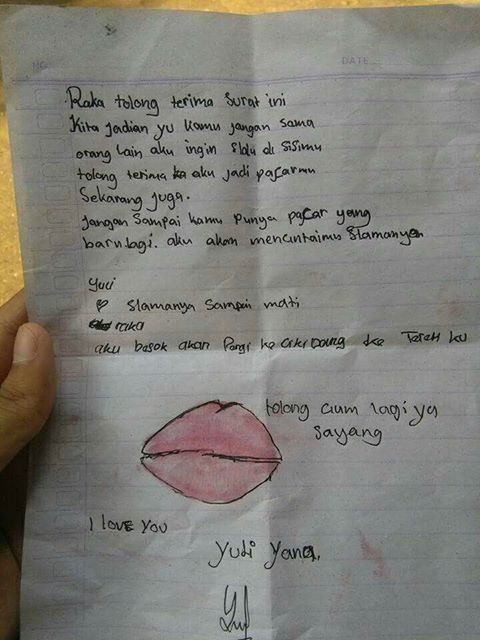 NO.
DATE
Raka tolong terima surat ini
Kita jadian yu kamu jangan sama
orang lain aku ingin slalu di sisimu
tolong terima aku jadi pacarmu
Sekarang juga.
jangan sampai kamu punya pacar yang
baru lagi. aku akan mencintaimu slamanya
Yuli
♡ Slamanya sampai mati
raka
aku besok akan Pergi ke ke Teteh ku
tolong cium lagi ya
sayang
I love you
Yuli Yana.